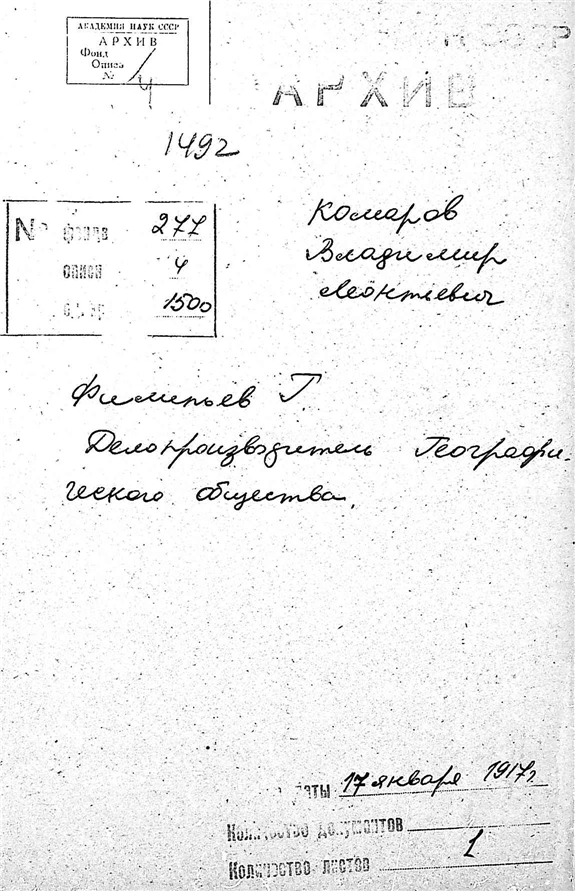 АКАДЕМИЯ НАУК СССР
АРХИВ
Фонд
Опись
№ 4
СССР
АРХИВ
1492
№ фонда 277
описи 4
1500
Комаров
Владимир
Леонтьевич
Г
Делопроизводитель Географи-
ческого общества.
даты 17 января 1917г
Количество документов
Количество листов 1